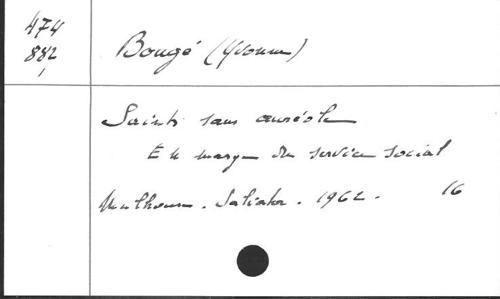 474
882
Bougé (Yvonne)
Saints sans auréole
En marge du service social
Mulhouse. Salvator. 1962. 16